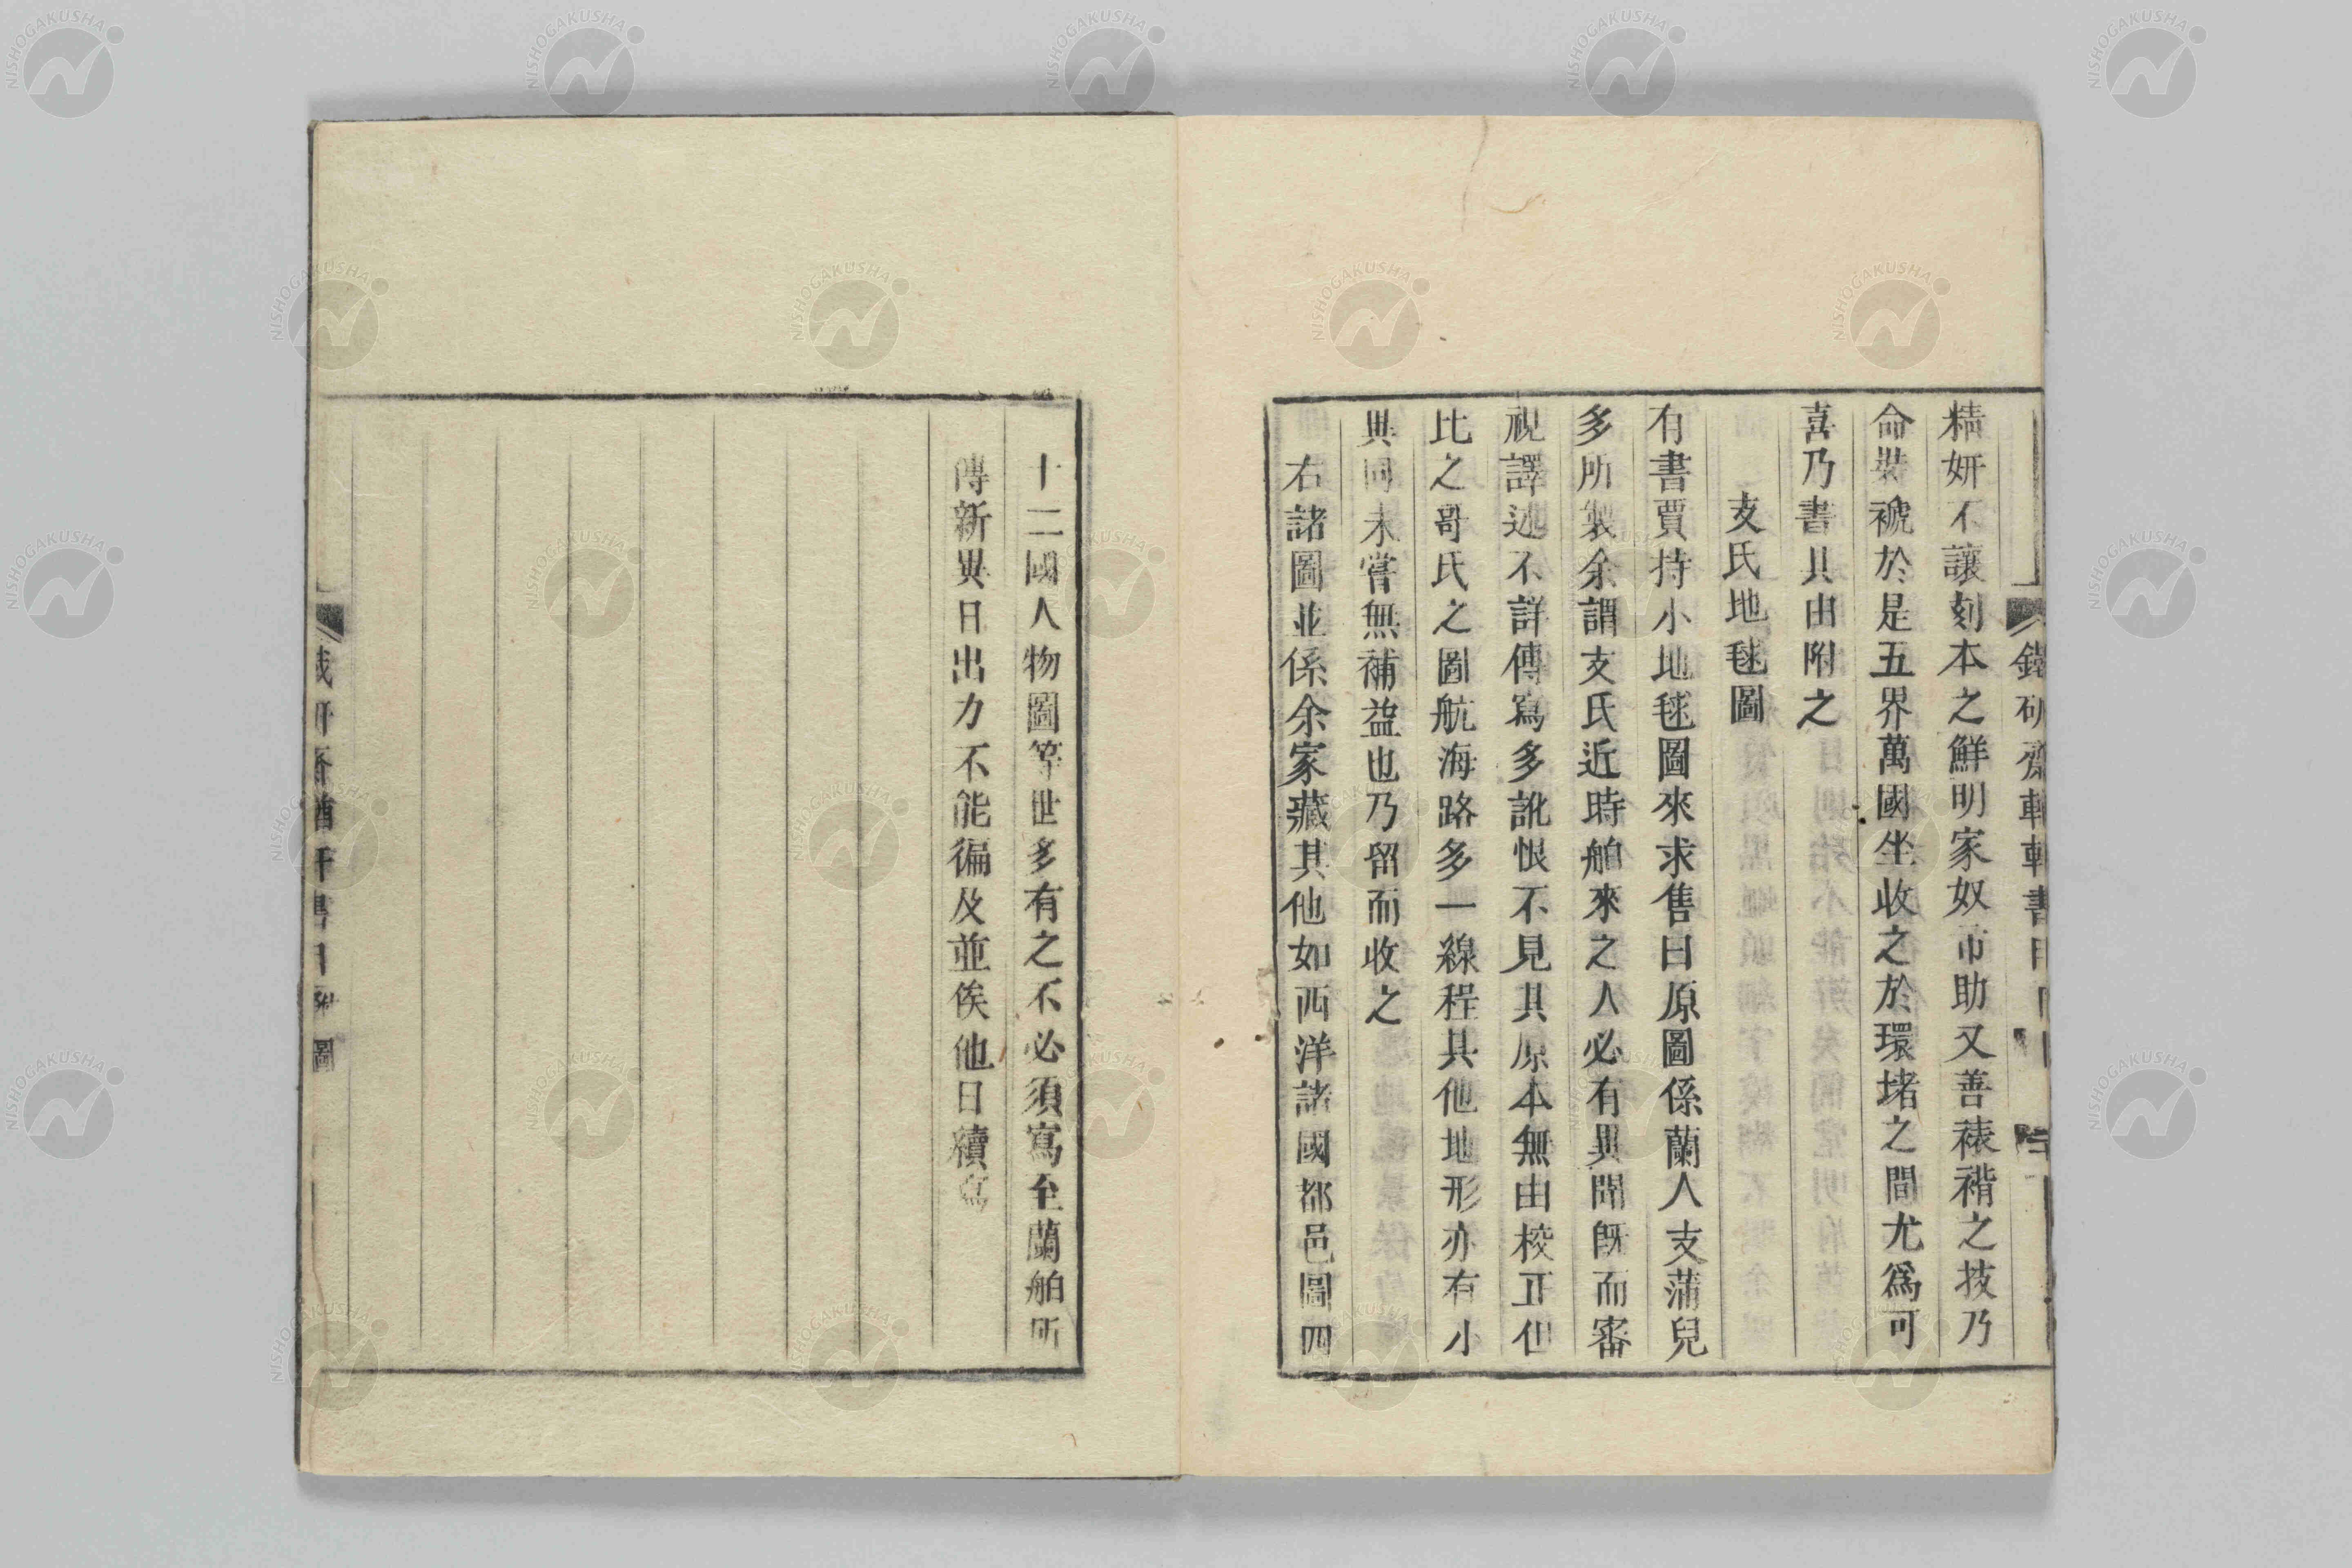 精妍不讓刻本之鮮明家奴市助又善裱褙之技乃
命裝褫於是五界萬國坐收之於環堵之間尤爲可
喜乃書其由附之
支氏地毬圖
有書賈持小地毬圖來求售曰原圖係蘭人支蒲兒
多所製余謂支氏近時舶來之人必有異聞既而審
視譯述不詳傳寫多訛恨不見其原本無由校正但
比之哥氏之圖航海路多一線程其他地形亦有小
異同未嘗無補益也乃留而收之
右諸圖並係余家藏其他如西洋諸國都邑圖四
十二國人物圖等世多有之不必須寫至蘭舶所
傳新異日出力不能徧及並俟他日續寫
NISHOGAKUSHA